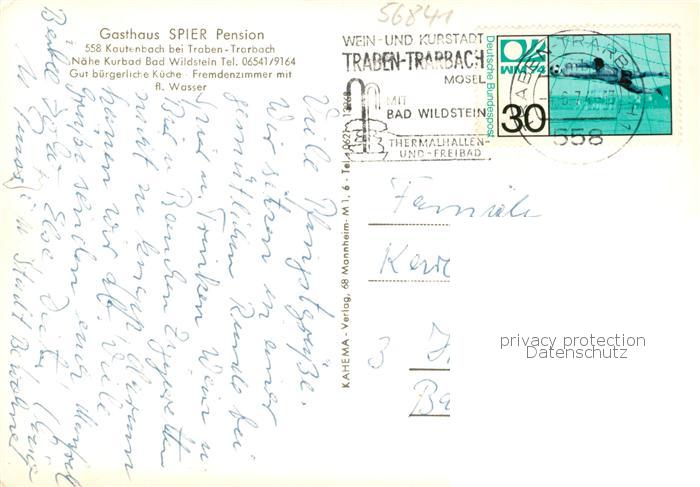 56841
Gasthaus SPIER Pension
558 Kautenbach bei Traben-Trarbach
Nähe Kurbad Bad Wildstein Tel. 06541/9164
Gut bürgerliche Küche · Fremdenzimmer mit
fl. Wasser
WEIN-UND KURSTADT
TRABEN-TRARBACH
MOSEL
MIT
BAD WILDSTEIN
THERMALHALLEN-
UND-FREIBAD
Deutsche Bundespost
WM 74
30
TRABEN-TRARBACH 1
558
KAHEMA - Verlag, 68 Mannheim - M 1, 6 - Tel. 0621
Viele Pfingstgrüße.
Wir sitzen in einer
gemütlichen Runde bei
Spiel u. Trinken Wein u
Bier u. Rauchen Zigaretten
nicht zu knapp. Warum
haben wir
Viele
Grüße senden euch Manfred
Else Dieter
Stadt
Familie
3
Ba
privacy protection
Datenschutz